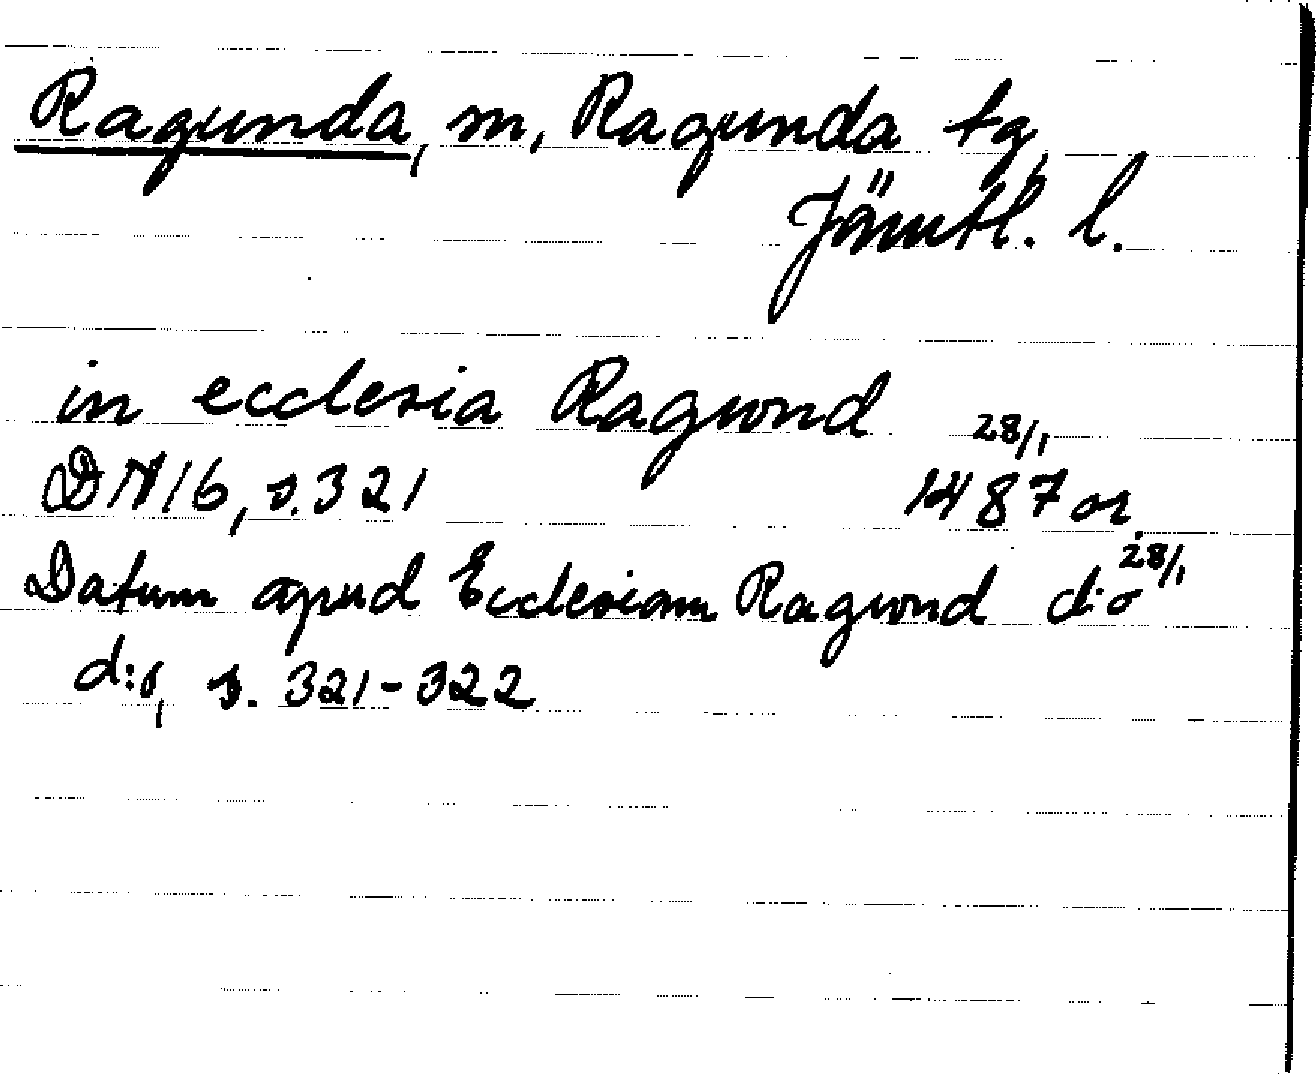 Ragunda, sn, Ragunda tg,
Jämtl. l.
in ecclesia Ragwnd 28/1
DN 16, s. 321 1487 or.
Datum apud Ecclesiam Ragwnd d:o 28/1
d:o, s. 321-322